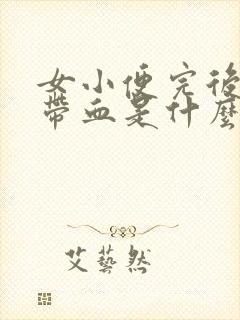 女小便完後
帶血是什麼
艾藝然